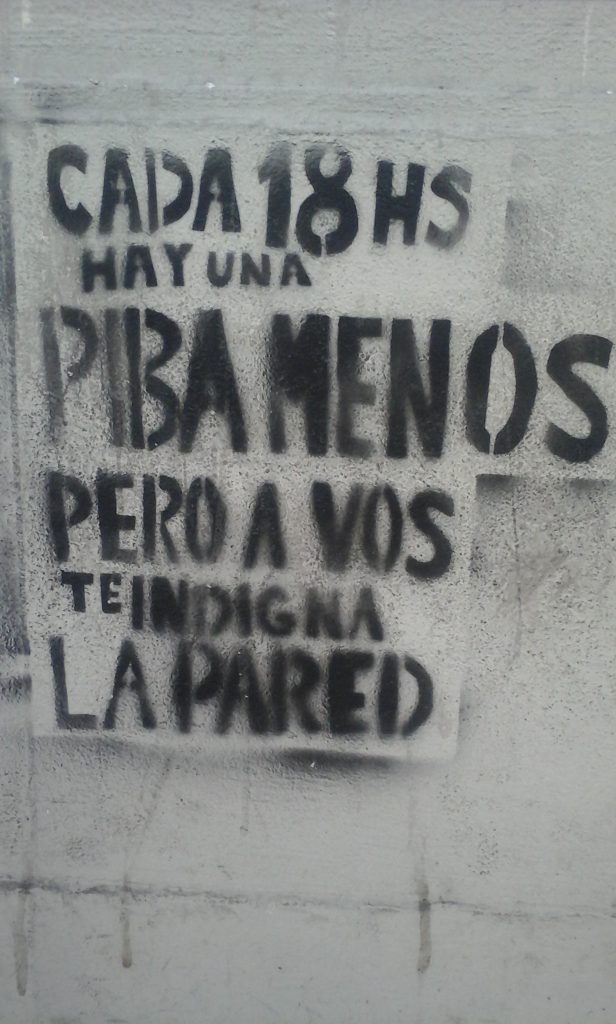 CADA 18 HS
HAY UNA
PIBA MENOS
PERO A VOS
TE INDIGNA
LA PARED